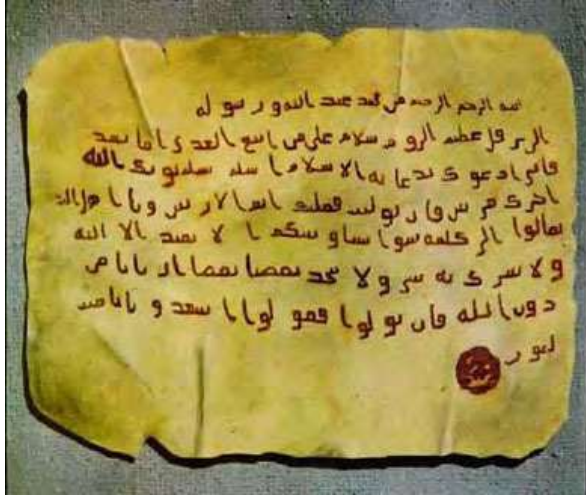 بسم الرحمن الرحيم من محمد عبد الله و رسو له
الى هر قل عظيم الرو م سلام على من اتبع الهدى اما بعد
فانى ادعو ك بدعا يه الا سلام ا سلم تسلم يوتك الله
اجرك مر تين فان توليت فعليك اثم الاريسين ويا ا هل الك
تعالوا الى كلمه سوا بينناو بينكم ا لا نعبد الا الله
و لا نشر ك به شى و لا يتخذ بعضنا بعضا اربابا من
دون الله فان تو لوا فقو لوا ا شهدو بانا مس
لمو ن